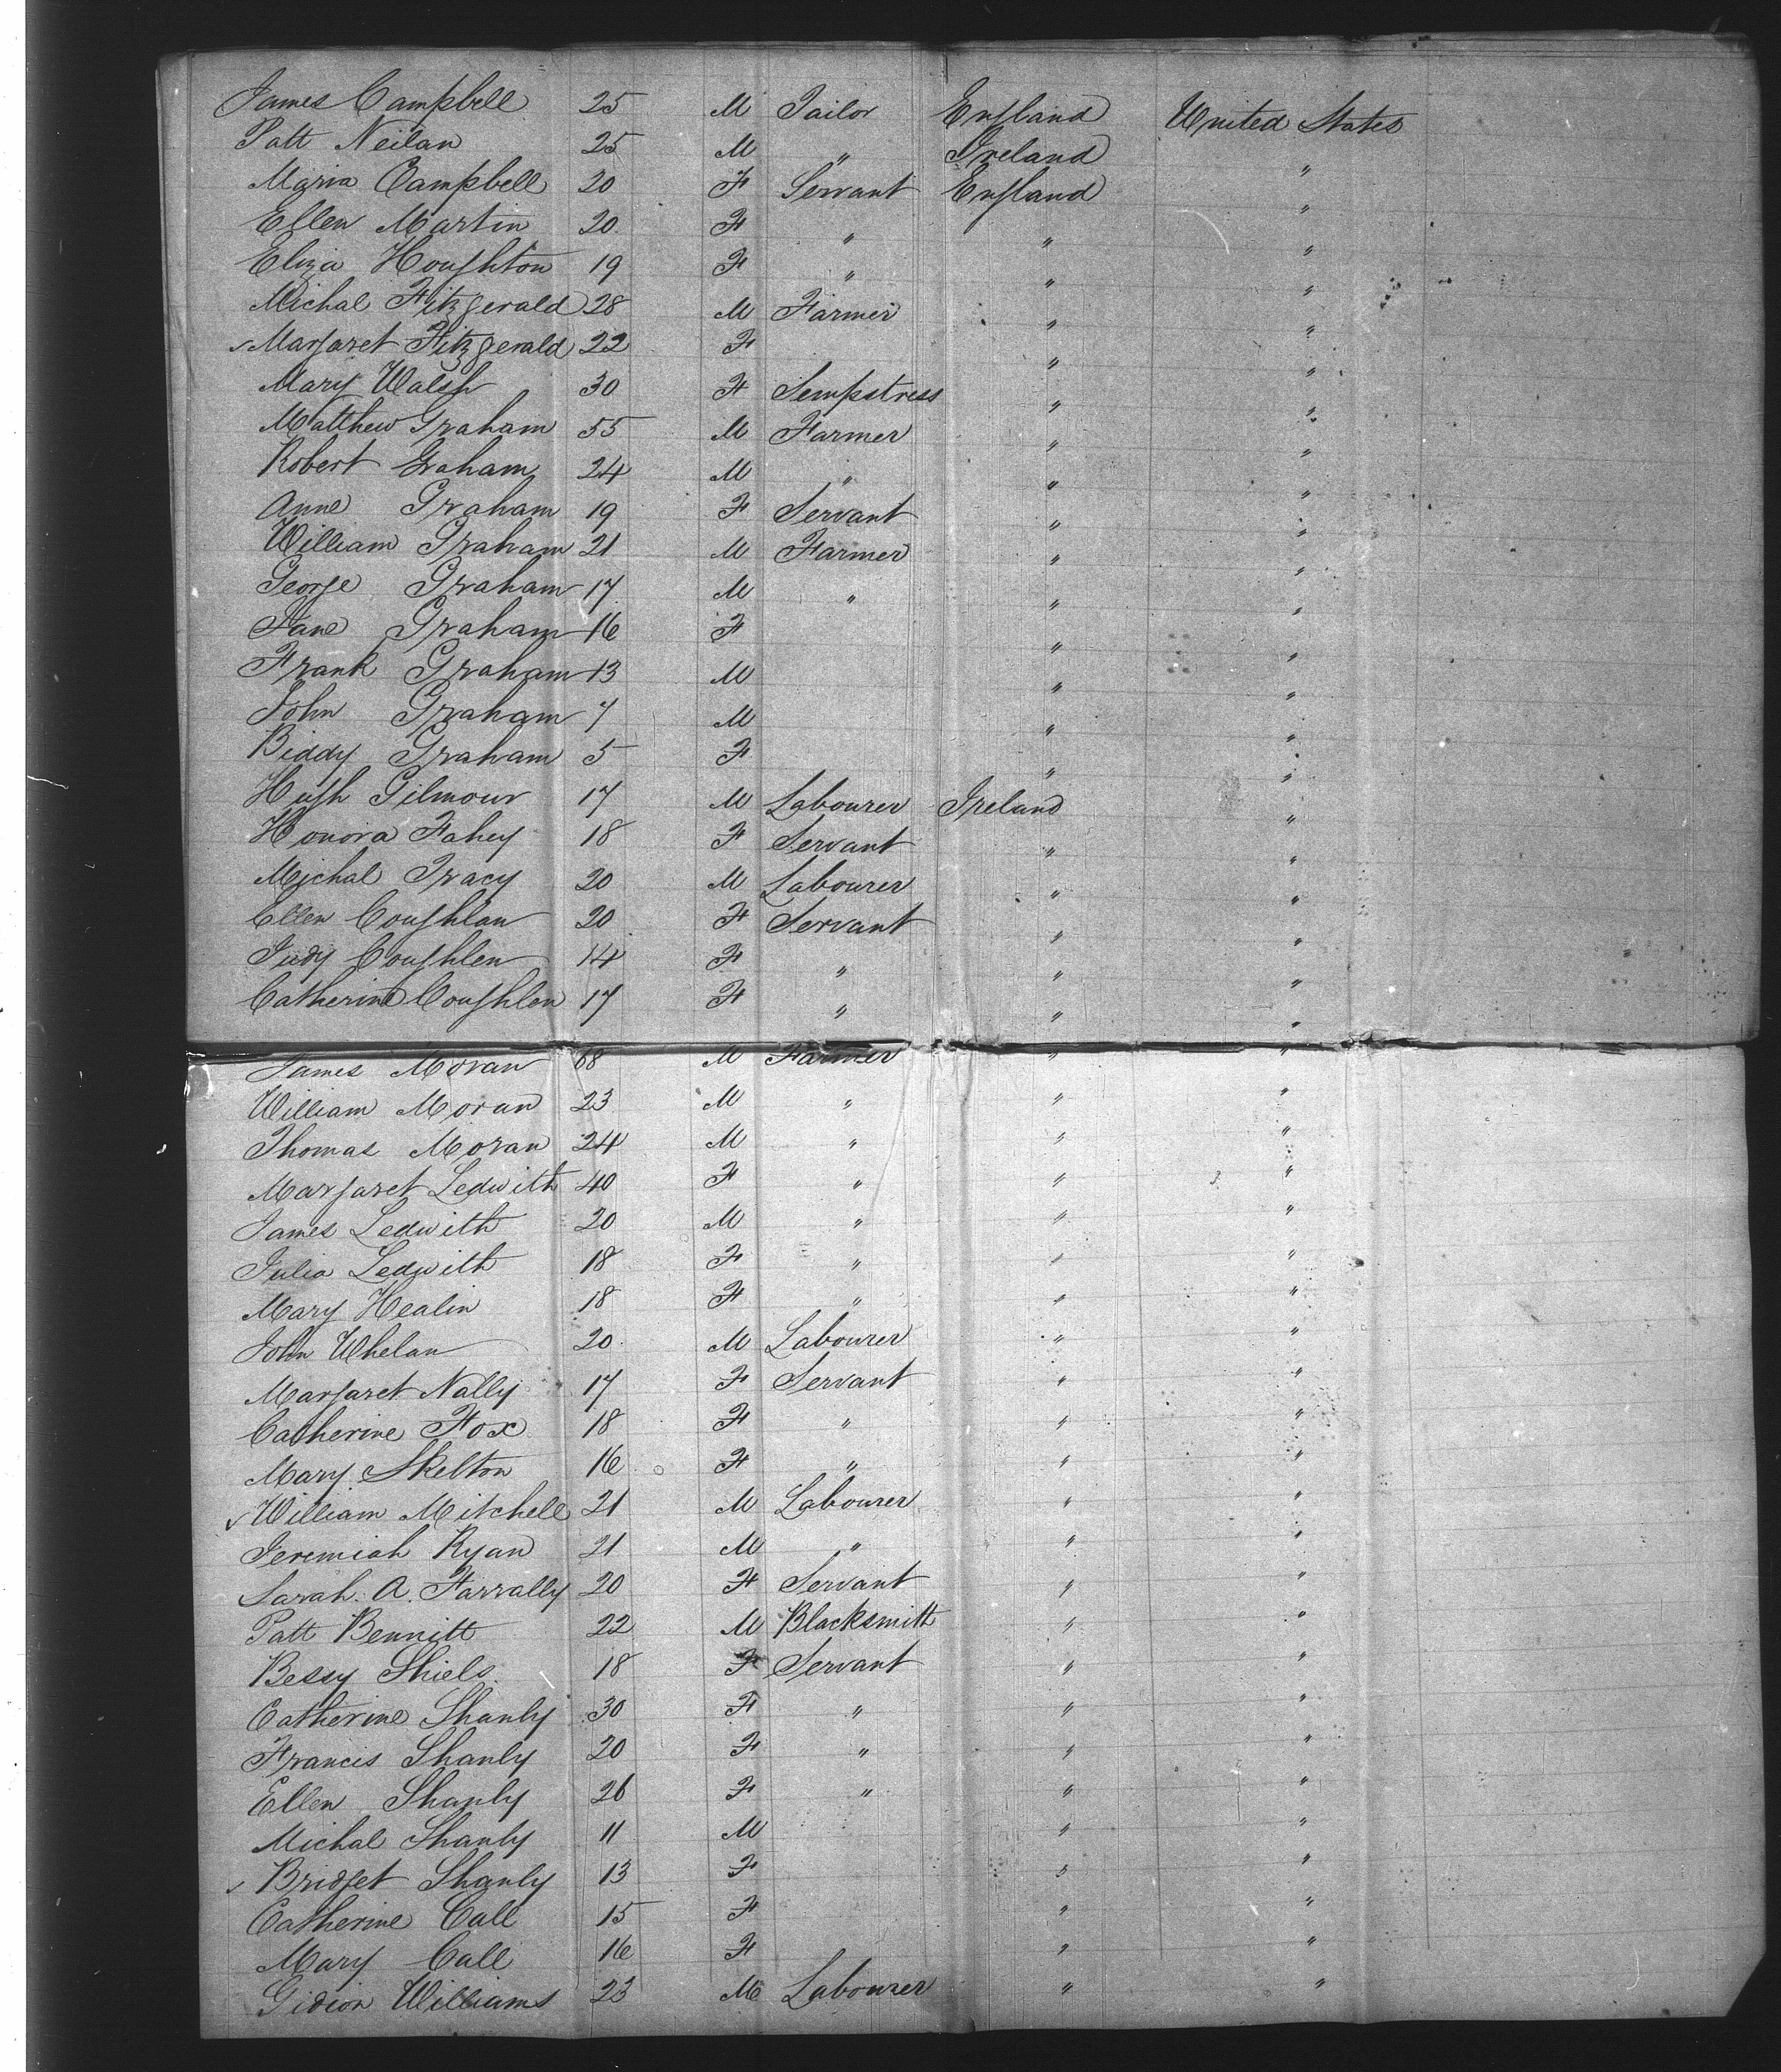 James Campbell 25 M Tailor England United States
Patt Neilan 25 M " Ireland "
Maria Campbell 20 F Servant England "
Ellen Martin 20 F " " "
Eliza Houghton 19 F " " "
Michal Fitzgerald 28 M Farmer " "
✓ Margaret Fitzgerald 22 F " "
Mary Walsh 30 F Sempstress " "
Matthew Graham 55 M Farmer " "
Robert Graham 24 M " " "
Anne Graham 19 F Servant " "
William Graham 21 M Farmer " "
George Graham 17 M " " "
Jane Graham 16 F " "
Frank Graham 13 M " "
John Graham 7 M " "
Biddy Graham 5 F " "
Hugh Gilmour 17 M Labourer Ireland "
Honora Fahey 18 F Servant " "
Michal Tracy 20 M Labourer " "
Ellen Coughlan 20 F Servant " "
Judy Coughlen 14 F " " "
Catherine Coughlen 17 F " " "
James Moran 68 M Farmer " "
William Moran 23 M " " "
Thomas Moran 24 M " " "
Margaret Ledwith 40 F " " "
James Ledwith 20 M " " "
Julia Ledwith 18 F " " "
Mary Healin 18 F " " "
John Whelan 20 M Labourer " "
Margaret Nally 17 F Servant " "
Catherine Fox 18 F " " "
Mary Skelton 16 F " " "
✓ William Mitchell 21 M Labourer " "
Jeremiah Ryan 21 M " " "
Sarah. A. Farrally 20 F Servant " "
Patt Bennitt 22 M Blacksmith " "
Bessy Shiels 18 F Servant " "
Catherine Shanly 30 F " " "
Francis Shanly 20 F " " "
Ellen Shanly 26 F " " "
Michal Shanly 11 M " "
✓ Bridget Shanly 13 F " "
Catherine Call 15 F " "
Mary Call 16 F " "
Gidion Williams 23 M Labourer " "